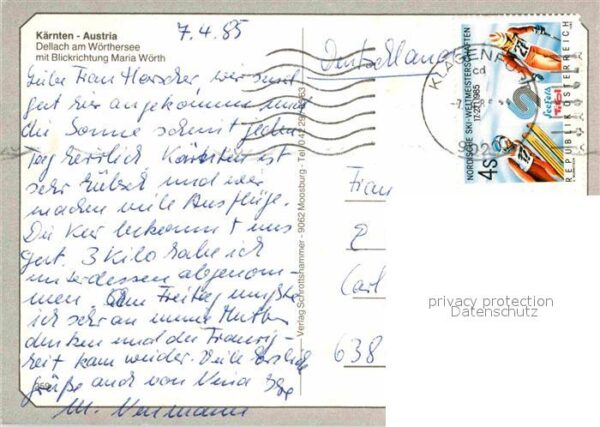 Kärnten - Austria
Dellach am Wörthersee
mit Blickrichtung Maria Wörth
7.4.85
Deutschland
Liebe Frau wir sind
gut hier angekommen und
die Sonne scheint jeden
Tag herrlich Kärnten ist
sehr hübsch und wir
machen viele Ausflüge.
Die Kur bekommt uns
gut. 3 Kilo habe ich
unterdessen abgenom-
men. Am Freitag mußte
ich sehr an meine Mutter
denken und die Traurig-
keit kam wieder. Viele herzliche
Grüße auch von
M. Neumann
Verlag Schrottshammer - 9062 Moosburg - Tel.
KLAGENFURT
NORDISCHE SKI-WELTMEISTERSCHAFTEN
17.-27.1.1985
Seefeld
Tirol
4S
REPUBLIK ÖSTERREICH
Frau
Carl
638
privacy protection
Datenschutz